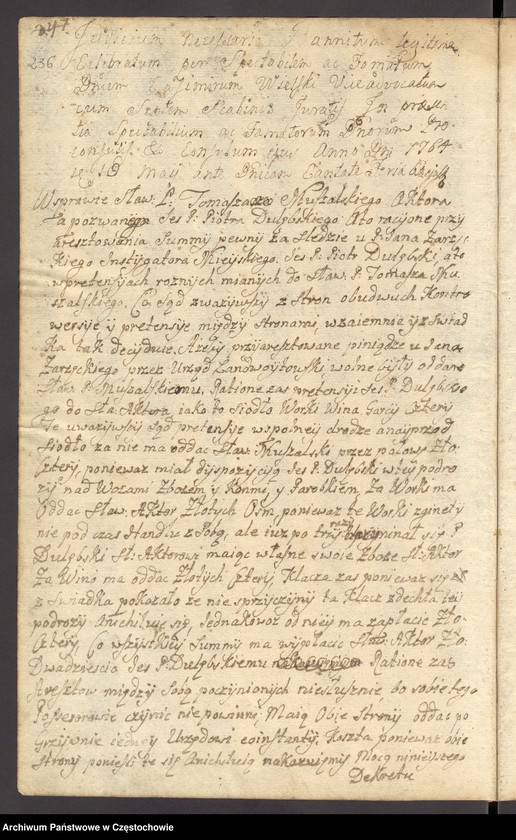 247.
236 Judicium necessarium Bannitum legitime
Celebratum per Spectabilem ac Famatum
Dnum Casimirum Wielski Viceadvocatum
cum Septem Scabinis Juratis In præsen
tia Spectabilium ac Famatorum Dnorum Pro
consulis & Consulum ejus Anno Dni 1764
18 May ant Dnicam Cantate Feria
W sprawie Sław. P. Tomasza Muszalskiego Aktora
a pozwanego Jeś P. Piotra Dulpskiego A to racyone przy
aresztowania Summy pewny za Sledzie u P. Jana Zarzyc
kiego Instygatora Mieyskiego. Jeś P. Piotr Dulpski, a to
w pretensyach roznych mianych do Sław. P. Tomasza Mu
szalskiego, Co Sąd zwazywszy z Stron obudwuch Kontro
wersyie y pretensyie między Stronami, wzaiemnie y z Swiad
ka tak decyduie. Azeby przyaresztowane pieniądze u Jana
Zarzyckiego przez Urząd Landwoytowski wolne były oddane
Sław. P. Muszalskiemu, Ratione zas pretensyi Jeś P. Dulpskie
go do Sła. Aktora, iako to Siodło Worki Wina Garcy Cztery
Te uwazywszy Sąd pretensye w polney drodze anayprzod
Siodło za nie ma oddac Sław. Muszalski przez połowę Zło.
Cztery, poniewaz miał dyspozycyą Jeś P. Dulpski w tey podro
zy nad Wozami Zbozem y Konmi, y Parobkiem, Za Worki ma
Oddac Sław. Aktor Złotych Osm, poniewaz te Worki zgineły
nie pod czas Handlu z Sobą, ale iuz po trzy razy upominał się P
Dulpski Sł. Aktorowi maiąc własne swoie Zboze Sł. Aktor
Za Wino ma oddac Złotych Cztery, Klacza zas poniewaz się
z Swiadka pokazało ze nie z przyczyny ta Klacz zdechła tey
podrozy Anichiluie się, Jednakowoz od niey ma zapłacic Zło.
Cztery, Co wszystkiey Summy ma wypłacic Sław. Aktor Zło.
Dwadziescia Jeś P. Dulpskiemu Ratione zas
Aresztow między Sobą poczynionych niesłusznie, bo sobie tego
Possesorowie czynic nie powinni, Maią Obie Strony oddac po
Grzywnie iedney Urzędowi coinstanty, Koszta poniewaz obie
Strony poniesli te się Anichiluią nakazuiemy Mocą ninieyszego
Dekretu
Archiwum Państwowe w Częstochowie